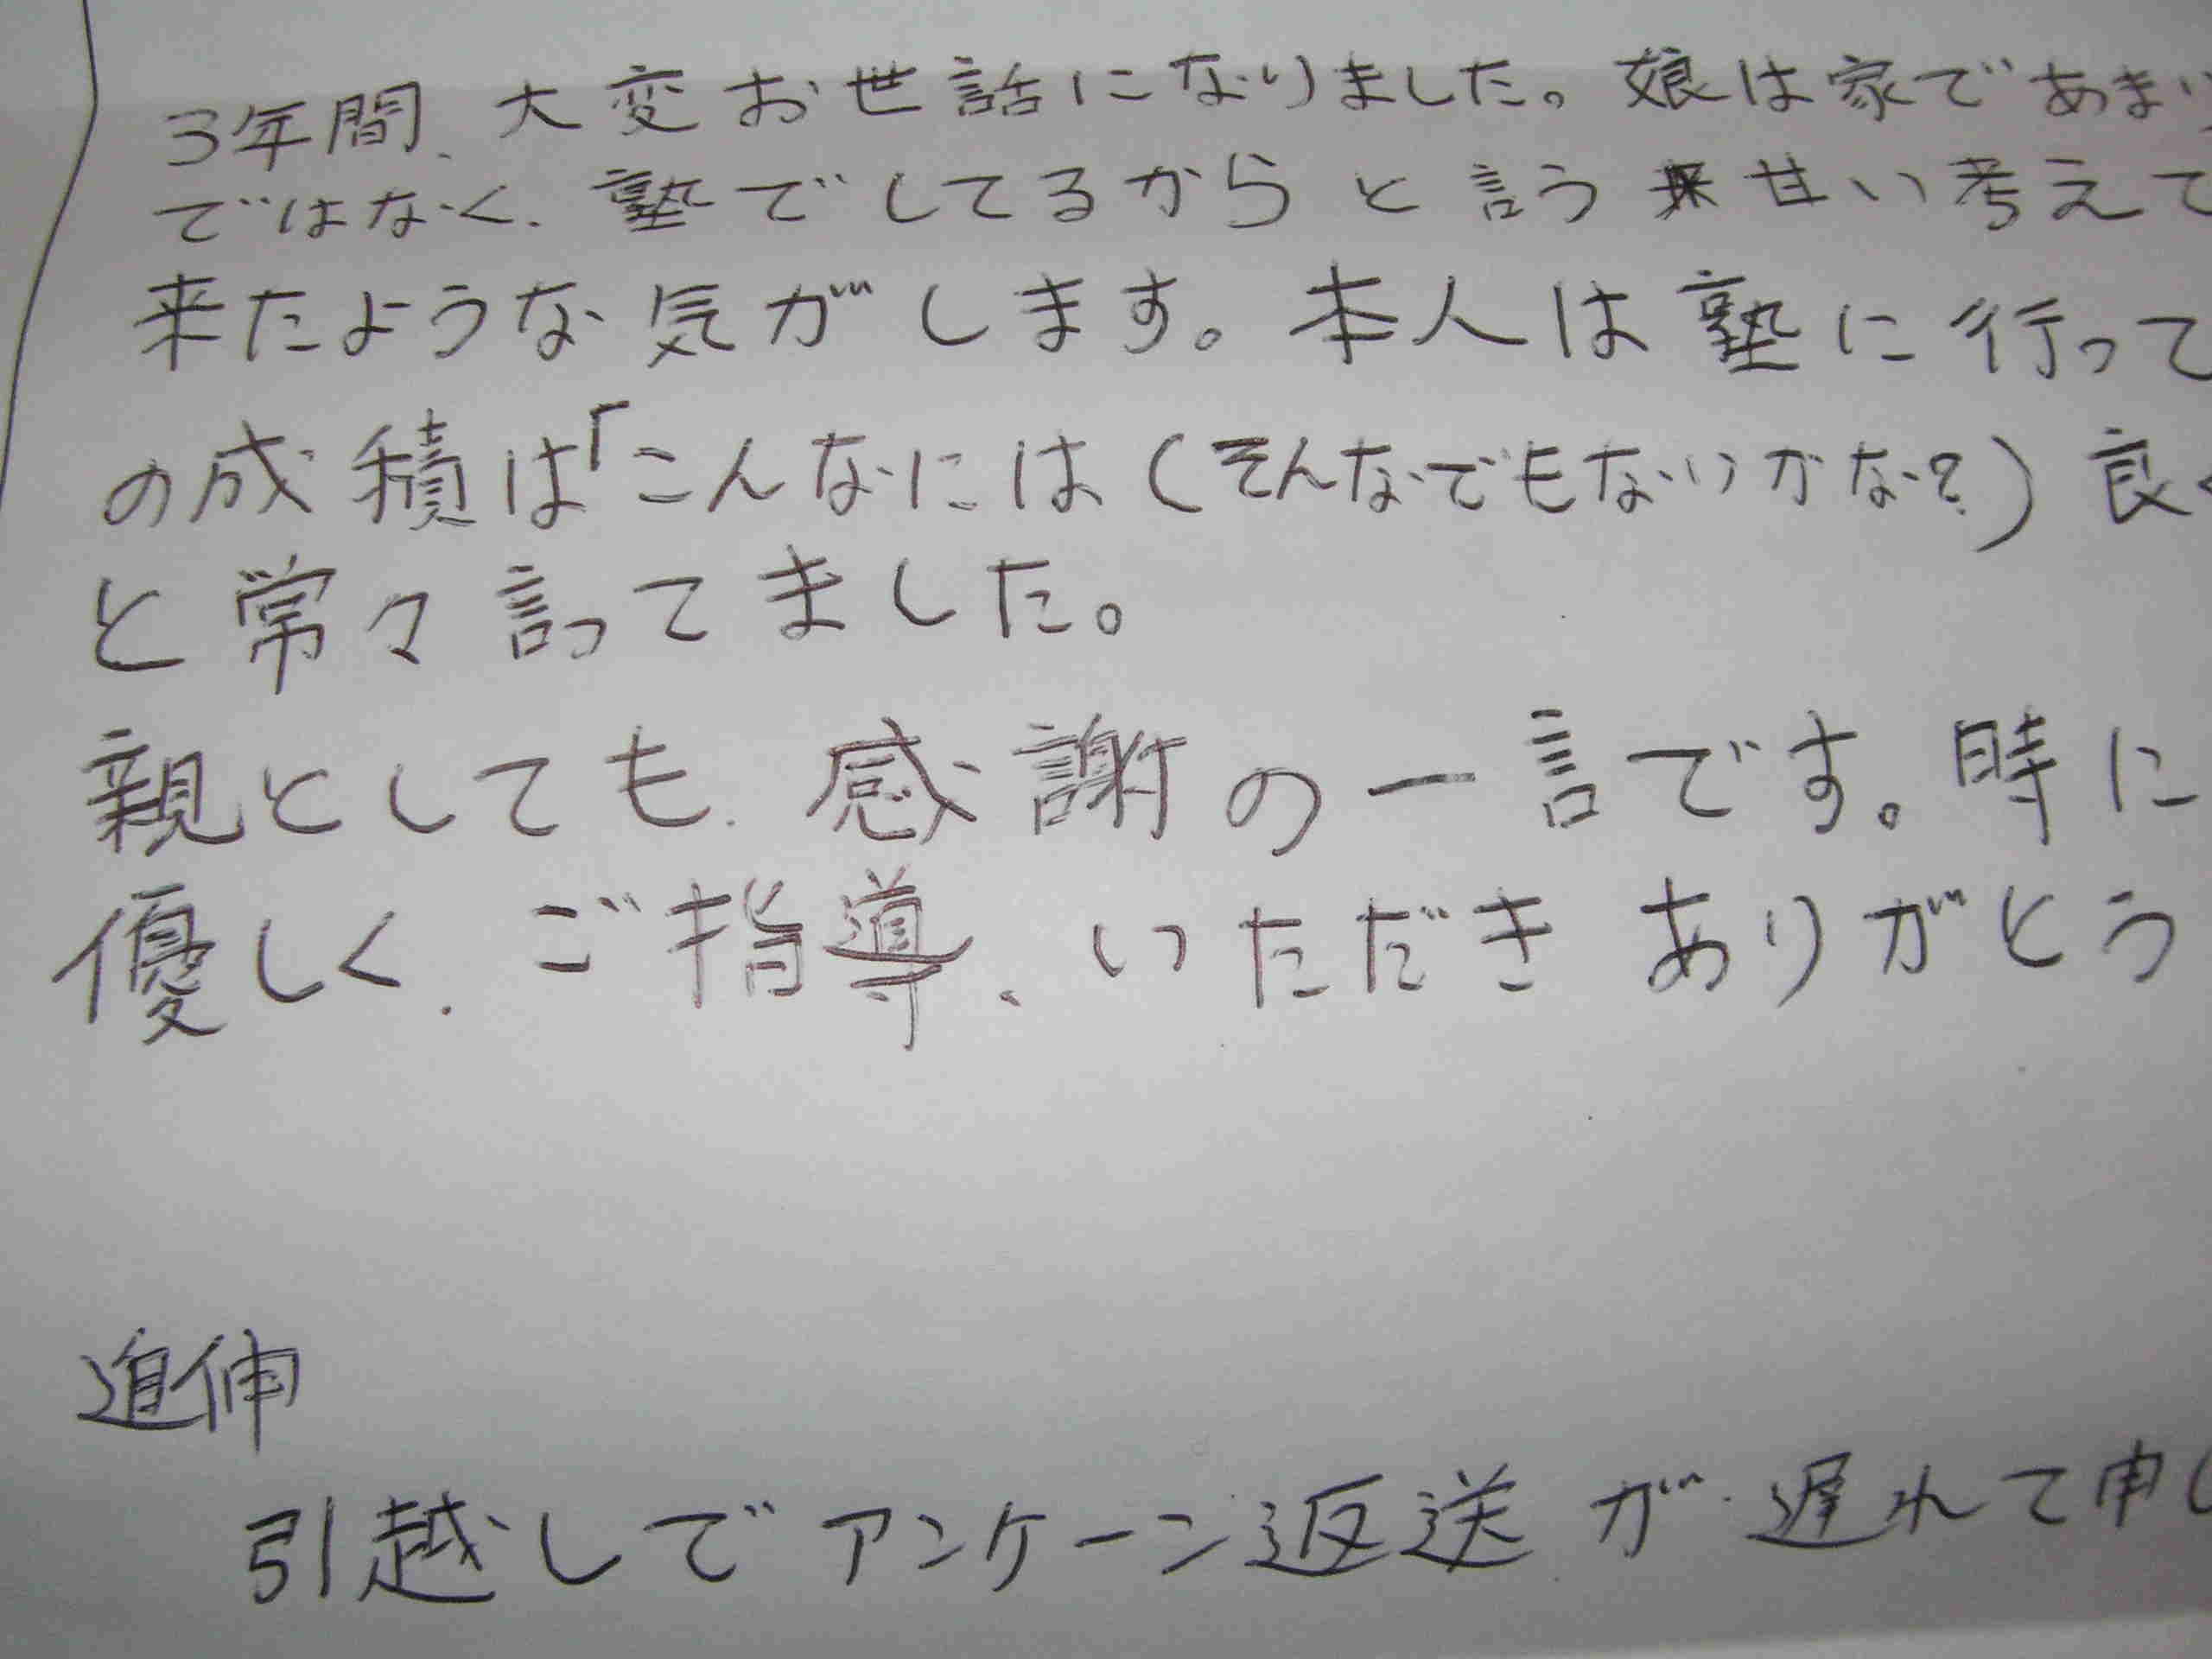 3年間、大変お世話になりました。娘は家であまり
ではなく、塾でしてるからと言う甘い考えで
来たような気がします。本人は塾に行って
の成積は「こんなには(そんなでもないかな?)良く
と常々言ってました。
親としても、感謝の一言です。時に
優しく、ご指導、いただきありがとう
追伸
引越しでアンケーン返送が遅れて申し